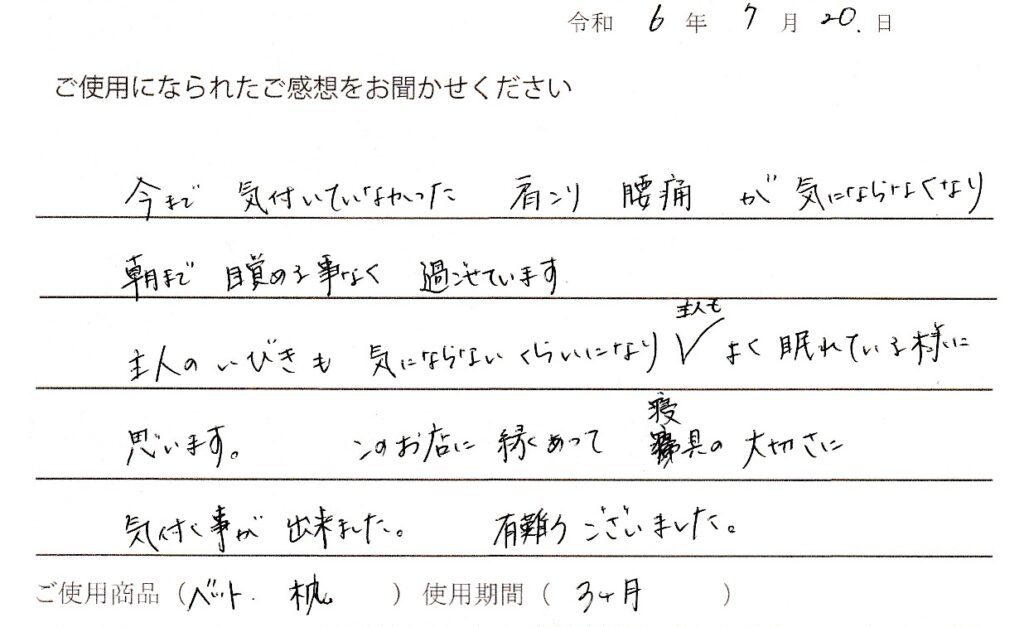 令和 6 年 7 月 20. 日
ご使用になられたご感想をお聞かせください
今まで 気付いていなかった 肩こり 腰痛 が 気にならなくなり
朝まで 目覚める事なく 過ごせています
主人も
主人の いびきも 気にならないくらいになり √ よく眠れている様に
寝
思います。 このお店に 縁あって 具の 大切さに
気付く事が 出来ました。 有難うございました。
ご使用商品（ベット. 枕 ）使用期間（ 3ヶ月 ）